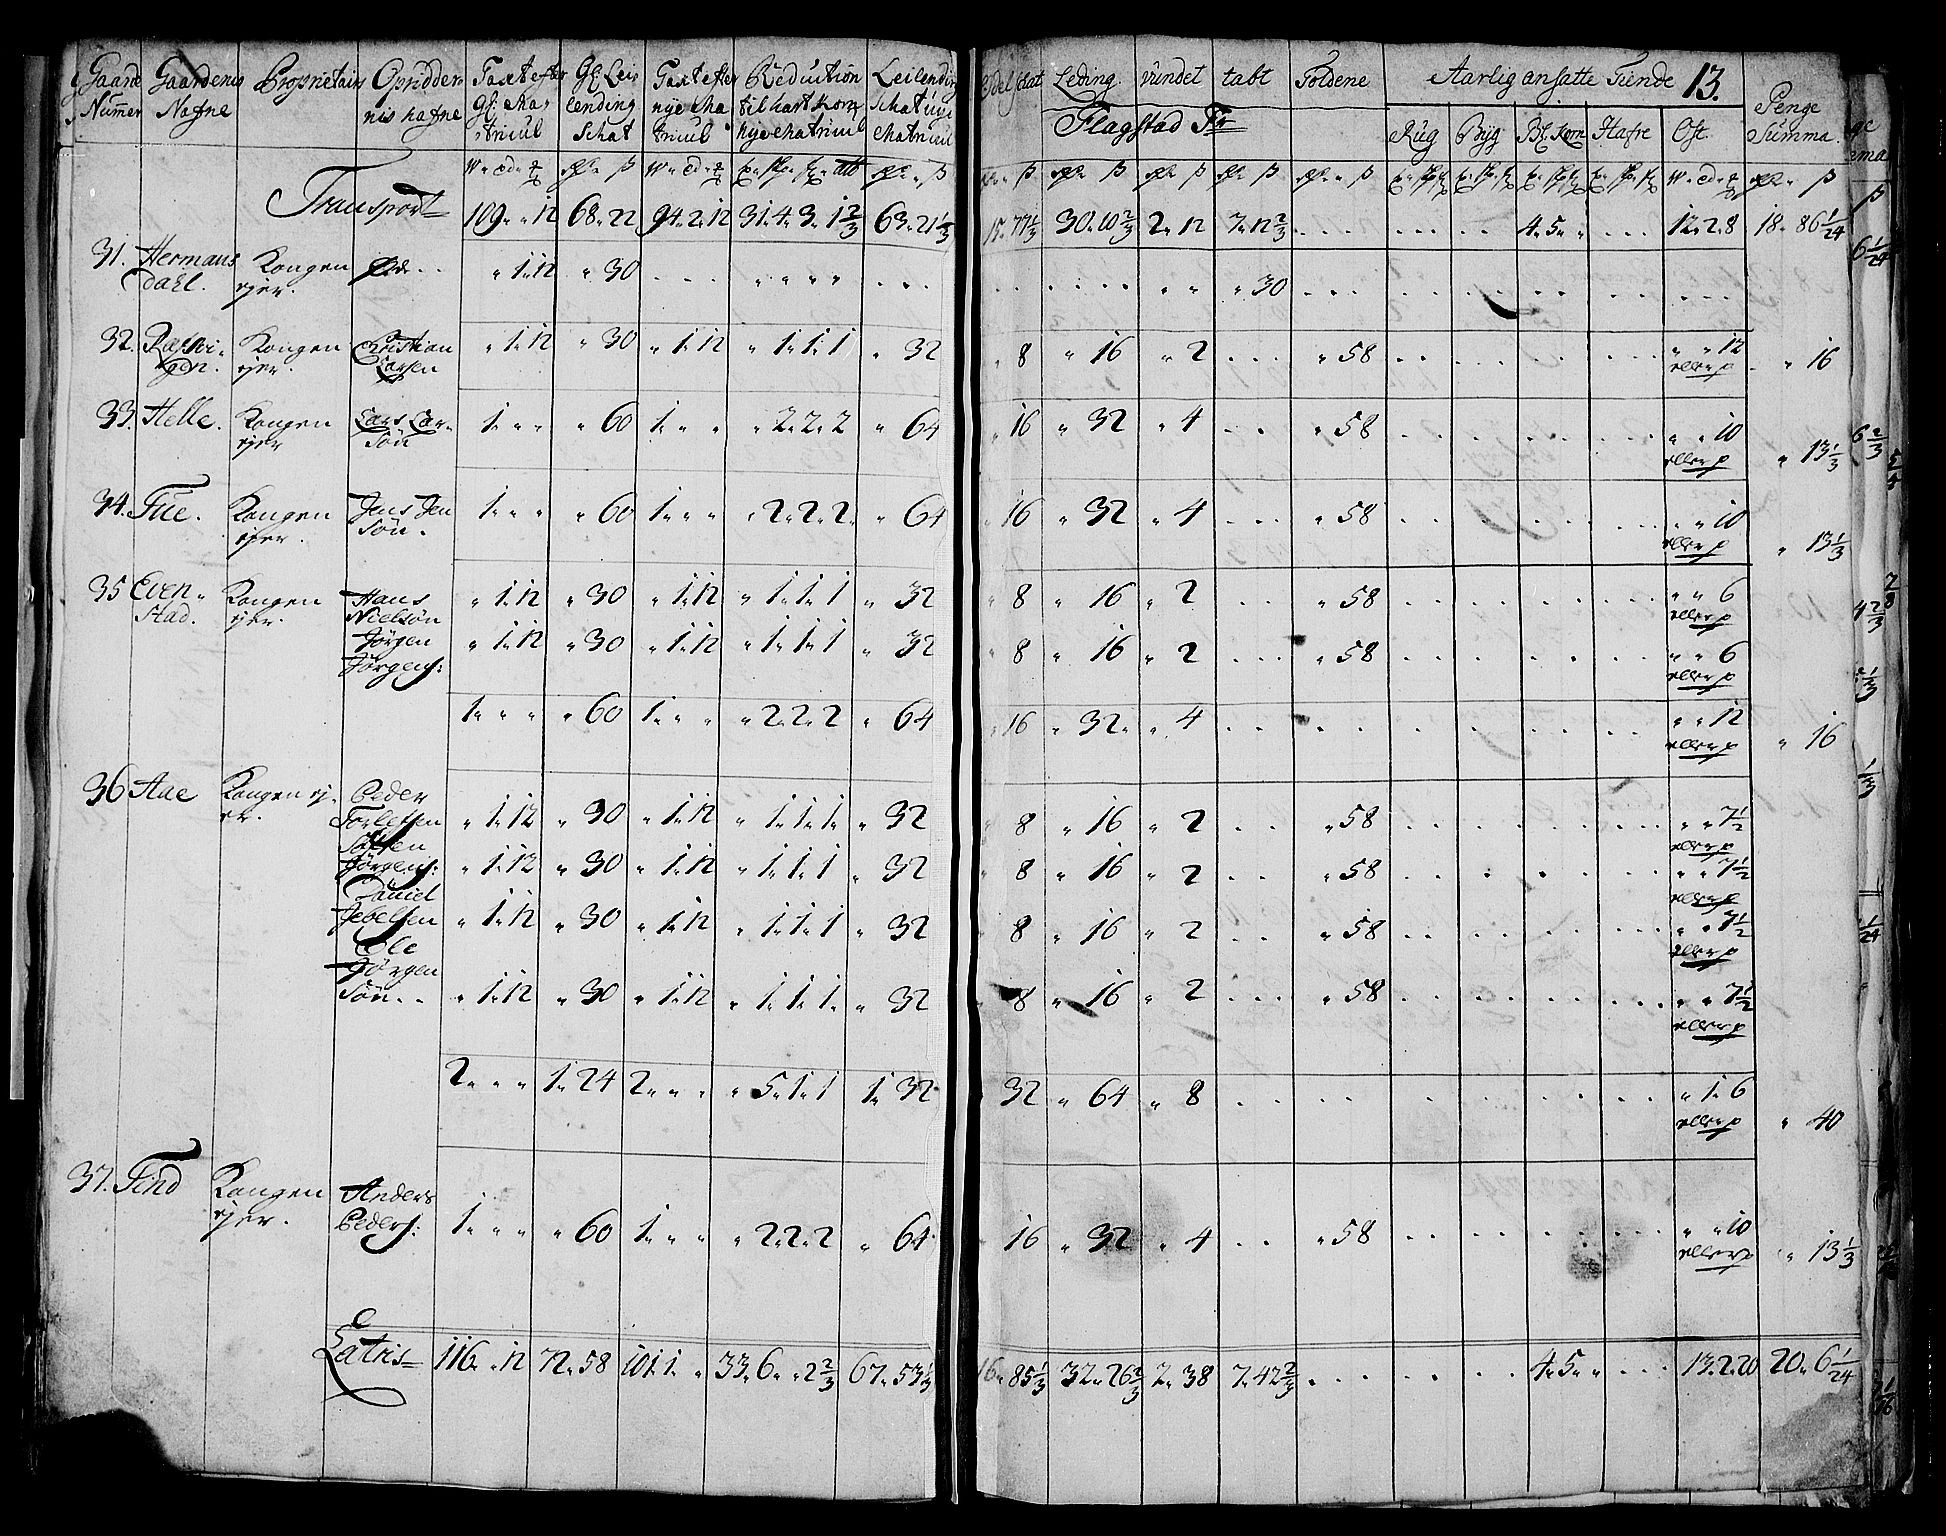 Gaards Nummer | Gaardenes Nafne | Proprietair | Opsidder nis nafne | Taxt efter Gl: Ma- tricul | Gl: Lei- lending Schat | Taxt efter nye Ma- tricul | Reduction til hart Korn nye Matricul | Leilending Schat nye Matricul | Odel schat | Leding | vundet | tabt | Foldene | Aarlig ansatte Tiende | 13.
Flagstad Fr | Rug | Byg | Bl. Korn | Hafre | Ost | Penge Summa
Transport | 109 „ 12 | 68 „ 22 | 94 „ 2 „ 12 | 31 „ 4 „ 3 „ 1 2/3 | 63 „ 21 1/3 | 15 „ 77 1/3 | 30 „ 10 2/3 | 2 „ 12 | 7 „ 12 2/3 | 4 „ 5 „ | 12 „ 2 „ 8 | 18 „ 86 1/24
31. Hermans dahl. | Kongen ejer. | Øde | „ 1 „ 12 | „ 30 | „ 30
32. | Kongen ejer. | Christian Larsen | „ 1 „ 12 | „ 30 | „ 1 „ 12 | „ 1 „ 1 „ 1 | „ 32 | „ 8 | „ 16 | „ 2 | „ 58 | „ „ 12 eller p | „ 16
33. Helle. | Kongen ejer | Lars Lar- Søn | 1 „ „ | „ 60 | 1 „ „ | „ 2 „ 2 „ 2 | „ 64 | „ 16 | „ 32 | „ 4 | „ 58 | „ „ 10 eller p | „ 13 1/3
34. Tue. | Kongen ejer. | Jens Jen Søn. | 1 „ „ | „ 60 | 1 „ „ | „ 2 „ 2 „ 2 | „ 64 | „ 16 | „ 32 | „ 4 | „ 58 | „ „ 10 eller p | „ 13 1/3
35 Even- Stad. | Kongen ejer. | Hans Nielsøn | „ 1 „ 12 | „ 30 | „ 1 „ 12 | „ 1 „ 1 „ 1 | „ 32 | „ 8 | „ 16 | „ 2 | „ 58 | „ „ 6 eller p
Jørgen Jørgens: | „ 1 „ 12 | „ 30 | „ 1 „ 12 | „ 1 „ 1 „ 1 | „ 32 | „ 8 | „ 16 | „ 2 | „ 58 | „ „ 6 eller p
1 „ „ | „ 60 | 1 „ „ | „ 2 „ 2 „ 2 | „ 64 | „ 16 | „ 32 „ | „ 4 | „ „ 12 eller p | „ 16
36 Aae | Kongen ej- er. | Peder Torletsen | „ 1 „ 12 | „ 30 | „ 1 „ 12 | „ 1 „ 1 „ 1 „ | „ 32 | „ 8 | „ 16 | „ 2 | „ 58 | „ „ 7 1/2 eller p
Jørgens: | „ 1 „ 12 | „ 30 | „ 1 „ 12 | „ 1 „ 1 „ 1 | „ 32 | „ 8 | „ 16 | „ 2 | „ 58 | „ „ 7 1/2 eller p
Daniel Jebelsen | „ 1 „ 12 | „ 30 | „ 1 „ 12 | „ 1 „ 1 „ 1 | „ 32 | „ 8 | „ 16 | „ 2 | „ 58 | „ „ 7 1/2 eller p
Ole Jørgen Søn | „ 1 „ 12 | „ 30 | „ 1 „ 12 | „ 1 „ 1 „ 1 „ | „ 32 | „ 8 | „ 16 | „ 2 | „ 58 | „ „ 7 1/2 eller p
2 „ „ | 1 „ 24 | 2 „ „ | „ 5 „ 1 „ 1 | 1 „ 32 | 32 | „ 64 | „ 8 | „ 1 „ 6 eller p | „ 40
37. Tind | Kongen ejer. | Anders Peders: | 1 „ „ | „ 60 | 1 „ „ | „ 2 „ 2 „ 2 | „ 64 | 16 | „ 32 | „ 4 | „ 58 | „ „ 10 eller p | „ 13 1/3
Latris | 116 „ „ 12 | 72 „ 58 | 101 „ 1 „ | 33 „ 6 „ „ 2 2/3 | 67 „ 53 1/3 | 16 „ 85 1/3 | 32 „ 26 2/3 | 2 „ 38 | 7 „ 42 2/3 | 4 „ 5 „ | 13 „ 2 „ 20 | 20 „ 6 1/24